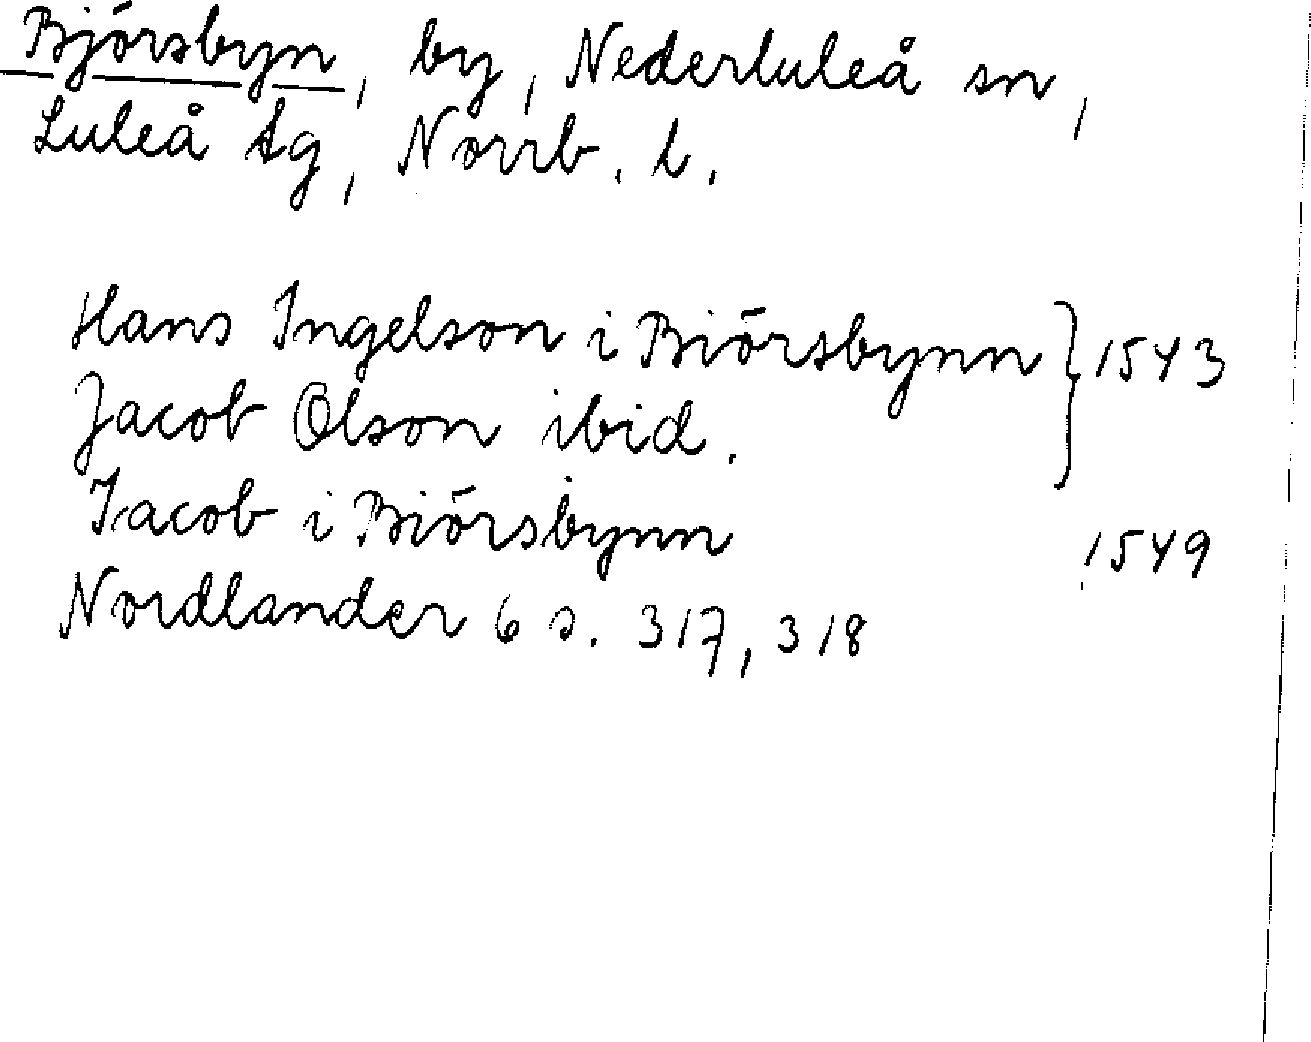 Björsbyn, by, Nederluleå sn,
Luleå tg, Norrb. l.
Hans Ingelson i Biörsbynn } 1543
Jacob Olson ibid.
Jacob i Biörsbynn 1549
Nordlander 6 s. 317, 318